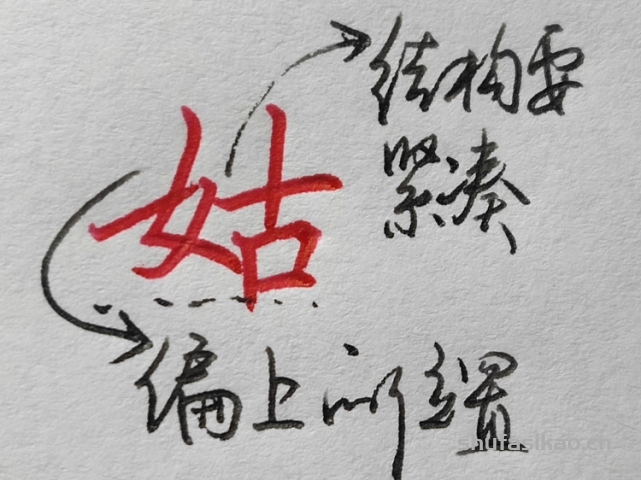 结构要
紧凑
姑
偏上置
shufasikao.cn